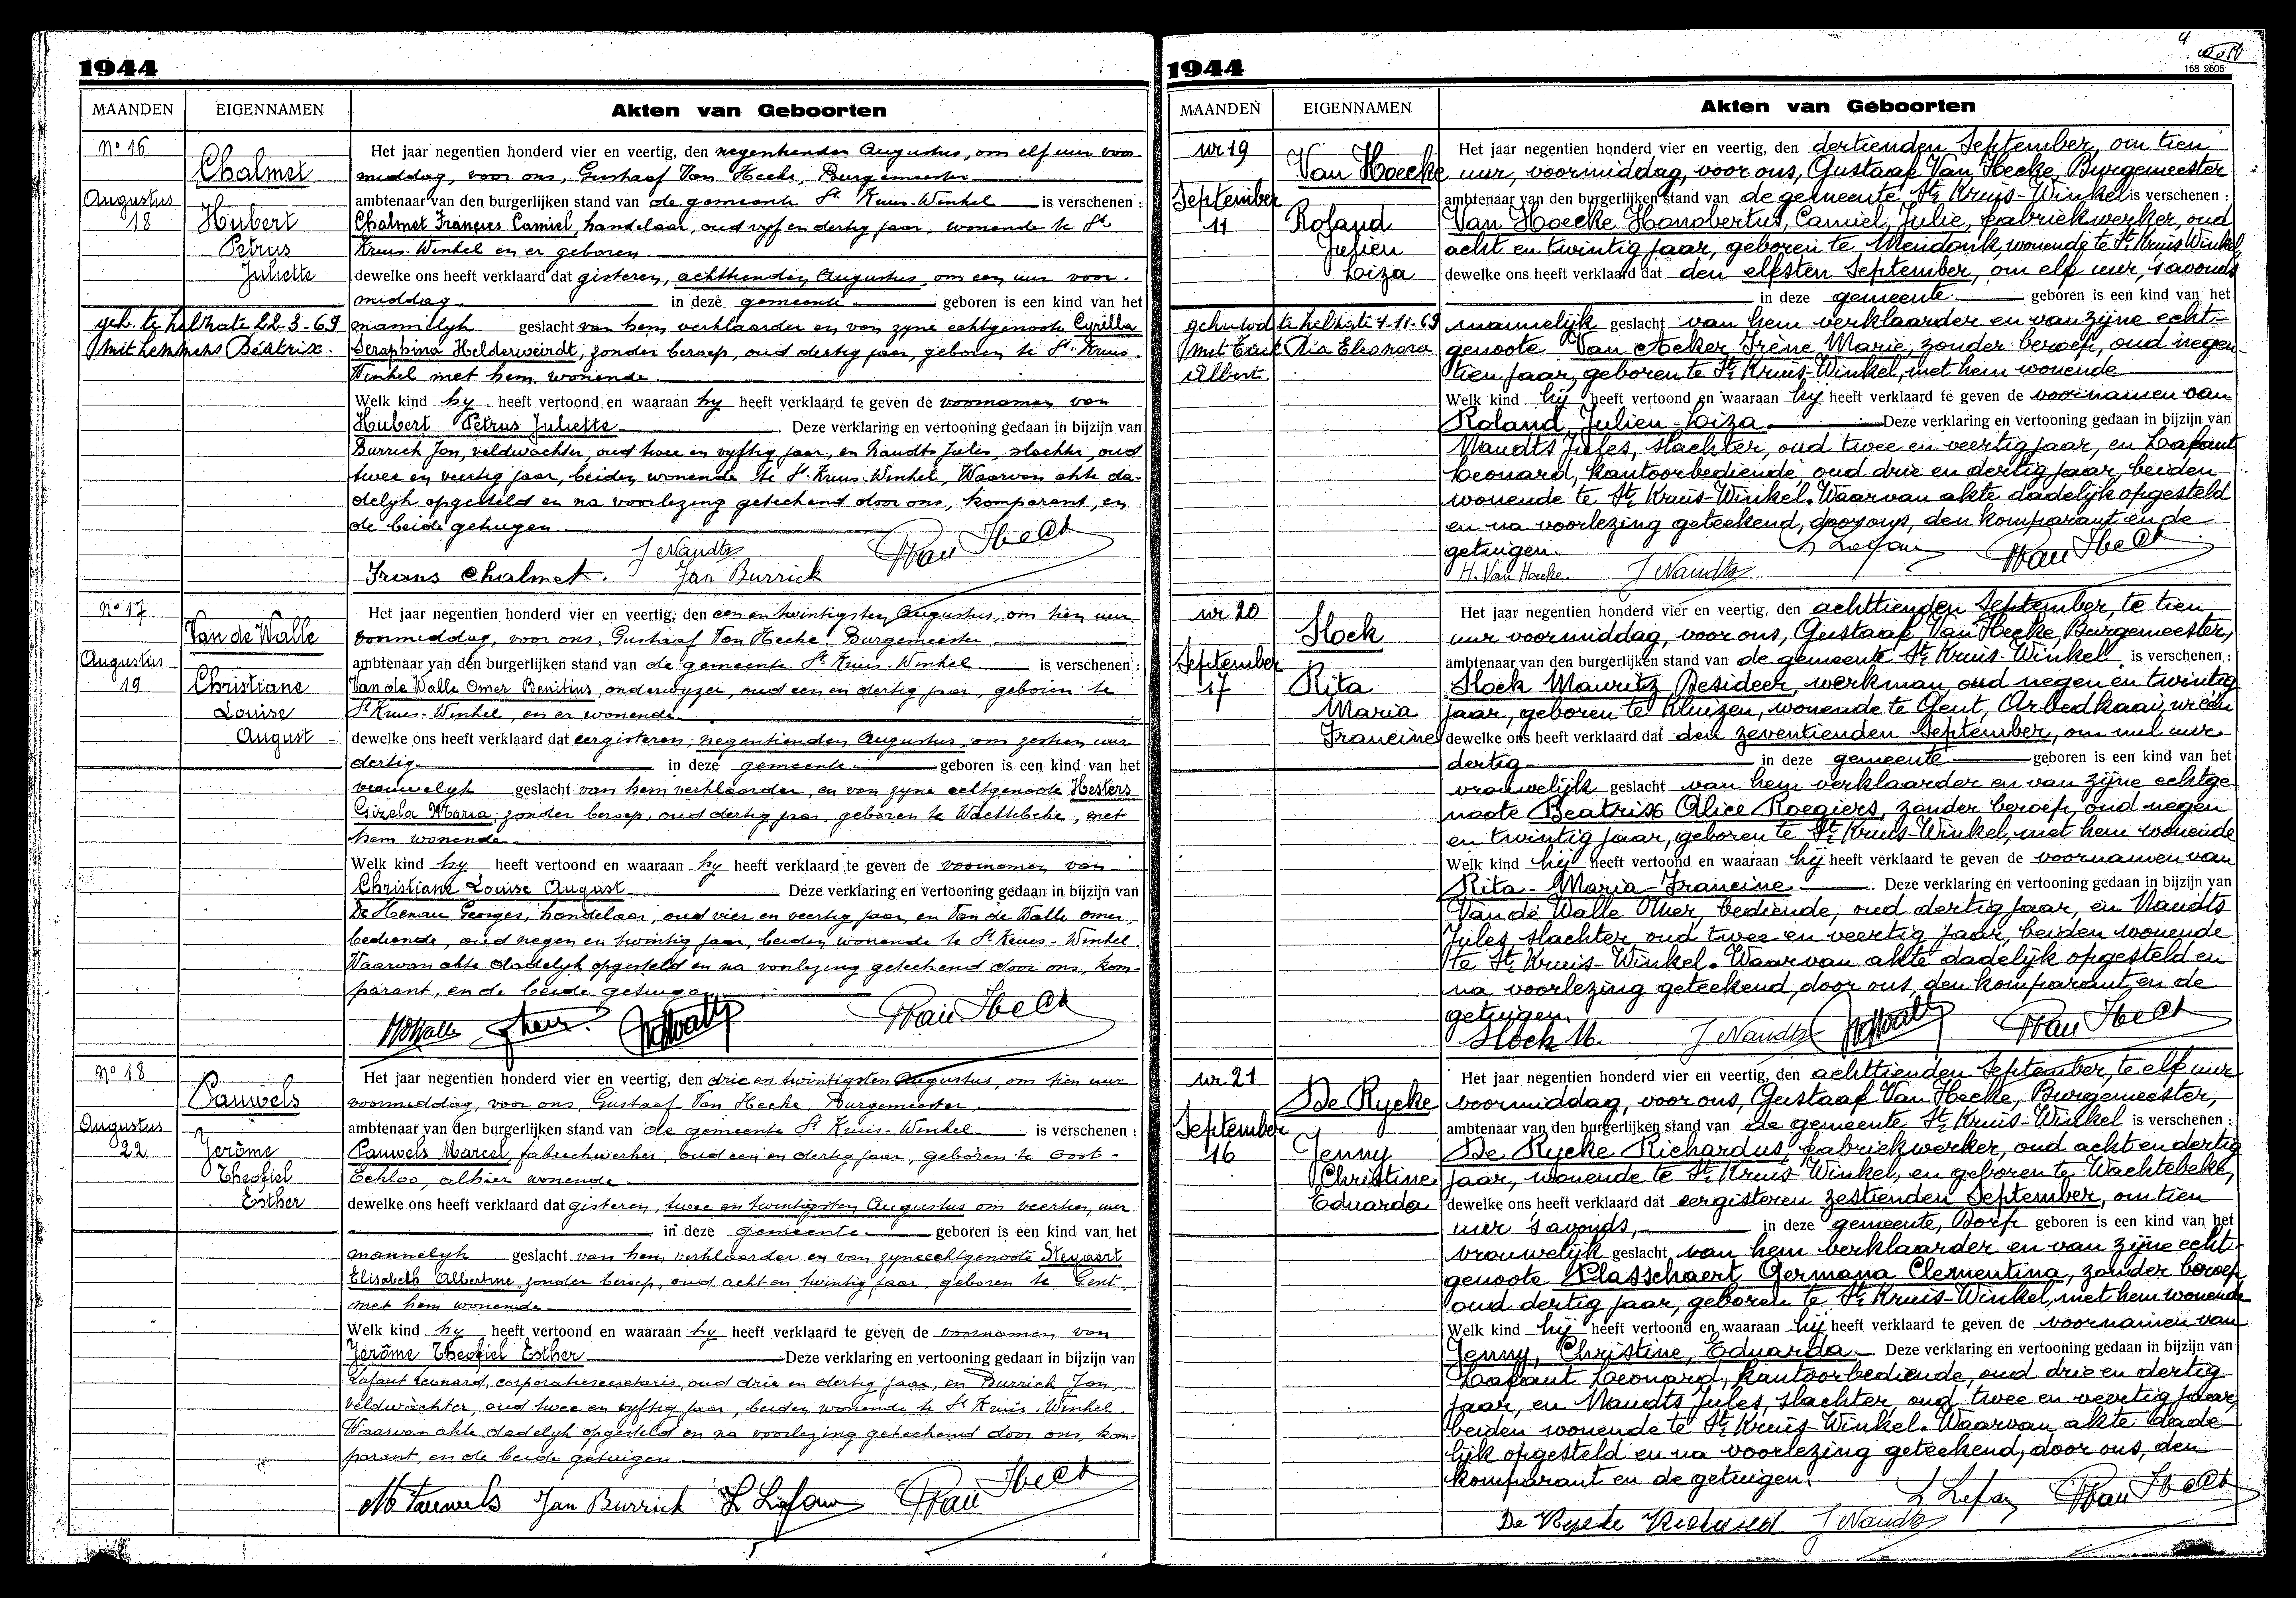 1944
MAANDEN EIGENNAMEN Akten van Geboorten
No 16
Chalmet
Augustus
18 Hubert
Petrus
Juliette
geh. te Zelzate 22-3-69
mit Lemmens Béatrix.
Het jaar negentien honderd vier en veertig, den negentienden Augustus, om elf uur voor
middag, voor ons, Gustaaf Van Hecke, Burgemeester
ambtenaar van den burgerlijken stand van de gemeente St Kruis-Winkel is verschenen :
Chalmet François Camiel, handelaar, oud vyf en dertig jaar, wonende te St
Kruis-Winkel en er geboren
dewelke ons heeft verklaard dat gisteren, achttienden Augustus, om een uur voor-
middag in deze gemeente geboren is een kind van het
mannelyk geslacht van hem verklaarder en van zyne echtgenoote Cyrilla
Seraphina Helderweirdt, zonder beroep, oud dertig jaar, geboren te St. Kruis-
Winkel met hem wonende
Welk kind hy heeft vertoond en waaraan hy heeft verklaard te geven de voornamen van
Hubert Petrus Juliette Deze verklaring en vertooning gedaan in bijzijn van
Burrick Jan, veldwachter, oud twee en vyftig jaar, en Naudts Jules, slachter, oud
twee en veertig jaar, beiden wonende te St. Kruis-Winkel, Waarvan akte da-
delyk opgesteld en na voorlezing geteekend door ons, komparant, en
de beide getuigen
J Naudts
Frans Chalmet. Jan Burrick
No 17
Van de Walle
Augustus
19 Christiane
Louise
August
Het jaar negentien honderd vier en veertig, den een en twintigsten Augustus, om tien uur
voormiddag, voor ons, Gustaaf Van Hecke, Burgemeester
ambtenaar van den burgerlijken stand van de gemeente St. Kruis-Winkel is verschenen :
Van de Walle Omer Benitius, onderwyzer, oud een en dertig jaar, geboren te
St Kruis-Winkel, en er wonende
dewelke ons heeft verklaard dat eergisteren, negentienden Augustus om zestien uur
dertig in deze gemeente geboren is een kind van het
vrouwelyk geslacht van hem verklaarder, en van zyne echtgenoote Hesters
Maria, zonder beroep, oud dertig jaar, geboren te Wachtebeke, met
hem wonende
Welk kind hy heeft vertoond en waaraan hy heeft verklaard te geven de voornamen van
Christiane Louise August Deze verklaring en vertooning gedaan in bijzijn van
De Henau Georges, handelaar, oud vier en veertig jaar, en Van de Walle omer,
bediende, oud negen en twintig jaar, beiden wonende te St. Kruis-Winkel.
Waarvan akte dadelyk opgesteld en na voorlezing geteekend door ons, kom-
parant, en de beide getuigen
No 18
Pauwels
Augustus
22 Jerôme
Theofiel
Esther
Het jaar negentien honderd vier en veertig, den drie en twintigsten Augustus, om tien uur
voormiddag, voor ons, Gustaaf Van Hecke, Burgemeester
ambtenaar van den burgerlijken stand van de gemeente St Kruis-Winkel is verschenen :
Pauwels Marcel, fabriekwerker, oud een en dertig jaar, geboren te Oost-
Eekloo, alhier wonende
dewelke ons heeft verklaard dat gisteren, twee en twintigsten Augustus om veertien uur
in deze gemeente geboren is een kind van het
mannelyk geslacht van hem verklaarder en van zyne echtgenoote Steyaert
Elisabeth Albertine, zonder beroep, oud acht en twintig jaar, geboren te Gent
met hem wonende
Welk kind hy heeft vertoond en waaraan hy heeft verklaard te geven de voornamen van
Jerôme Theofiel Esther Deze verklaring en vertooning gedaan in bijzijn van
Lafaut Leonard, corporatiesecretaris, oud drie en dertig jaar, en Burrick Jan,
veldwachter, oud twee en vyftig jaar, beiden wonende te St Kruis-Winkel
Waarvan akte dadelyk opgesteld en na voorlezing geteekend door ons, kom-
parant, en de beide getuigen
M Pauwels Jan Burrick L Lafaut
1944
4
168 2606
MAANDEN EIGENNAMEN Akten van Geboorten
nr 19
Van Hoecke
September
11 Roland
Julien
Loiza
gehuwd te Zelzate 4-11-69
met Ria Eleonora
Albert
Het jaar negentien honderd vier en veertig, den dertienden September, om tien
uur, voormiddag, voor ons, Gustaaf Van Hecke, Burgemeester
ambtenaar van den burgerlijken stand van de gemeente St. Kruis-Winkel is verschenen :
Van Hoecke Honobertus, Camiel, Julie, fabriekwerker, oud
acht en twintig jaar, geboren te Mendonk, wonende te St. Kruis Winkel,
dewelke ons heeft verklaard dat den elfsten September, om elf uur, 's avonds
in deze gemeente geboren is een kind van het
mannelijk geslacht van hem verklaarder en van zijne echt-
genoote Van Acker Irène Marie, zonder beroep, oud negen-
tien jaar, geboren te St. Kruis-Winkel, met hem wonende
Welk kind hij heeft vertoond en waaraan hij heeft verklaard te geven de voornamen van
Roland Julien Loiza. Deze verklaring en vertooning gedaan in bijzijn van
Naudts Jules, slachter, oud twee en veertig jaar, en Lafaut
Leonard, kantoorbediende, oud drie en dertig jaar, beiden
wonende te St. Kruis-Winkel. Waarvan akte dadelijk opgesteld
en na voorlezing geteekend, door ons, den komparant en de
getuigen.
H. Van Hoecke. J Naudts L Lafaut
nr 20
Hoek
September
17 Rita
Maria
Francine
Het jaar negentien honderd vier en veertig, den achttienden September, te tien
uur voormiddag, voor ons, Gustaaf Van Hecke, Burgemeester,
ambtenaar van den burgerlijken stand van de gemeente St. Kruis-Winkel is verschenen :
Hoek Mauritz Desideer, werkman, oud negen en twintig
jaar, geboren te Kluizen, wonende te Gent, Arbedkaai, nr één
dewelke ons heeft verklaard dat den zeventienden September, om nul uur
dertig in deze gemeente geboren is een kind van het
vrouwelijk geslacht van hem verklaarder en van zijne echtge
noote Beatrix Alice Roegiers, zonder beroep, oud negen
en twintig jaar, geboren te St. Kruis-Winkel, met hem wonende
Welk kind hij heeft vertoond en waaraan hij heeft verklaard te geven de voornamen van
Rita - Maria - Francine. Deze verklaring en vertooning gedaan in bijzijn van
Van de Walle Omer, bediende, oud dertig jaar, en Naudts
Jules, slachter, oud twee en veertig jaar, beiden wonende
te St. Kruis-Winkel. Waarvan akte dadelijk opgesteld en
na voorlezing geteekend, door ons, den komparant, en de
getuigen.
Hoek M. J Naudts
nr 21
De Rycke
September
16 Jenny
Christine
Eduarda
Het jaar negentien honderd vier en veertig, den achttienden September, te elf uur
voormiddag, voor ons, Gustaaf Van Hecke, Burgemeester,
ambtenaar van den burgerlijken stand van de gemeente St. Kruis-Winkel is verschenen :
De Rycke Richardus, fabriekwerker, oud acht en dertig
jaar, wonende te St. Kruis-Winkel, en geboren te Wachtebeke,
dewelke ons heeft verklaard dat eergisteren zestienden September, om tien
uur 's avonds, in deze gemeente, Dorp geboren is een kind van het
vrouwelijk geslacht van hem verklaarder en van zijne echt-
genoote Plasschaert Germana Clementina, zonder beroep,
oud dertig jaar, geboren te St. Kruis-Winkel, met hem wonende
Welk kind hij heeft vertoond en waaraan hij heeft verklaard te geven de voornamen van
Jenny, Christine, Eduarda. Deze verklaring en vertooning gedaan in bijzijn van
Lafaut Leonard, kantoorbediende, oud drie en dertig
jaar, en Naudts Jules, slachter, oud twee en veertig jaar,
beiden wonende te St. Kruis-Winkel. Waarvan akte dade-
lijk opgesteld en na voorlezing geteekend, door ons, den
komparant en de getuigen.
L Lafaut
De Rycke Richard J Naudts